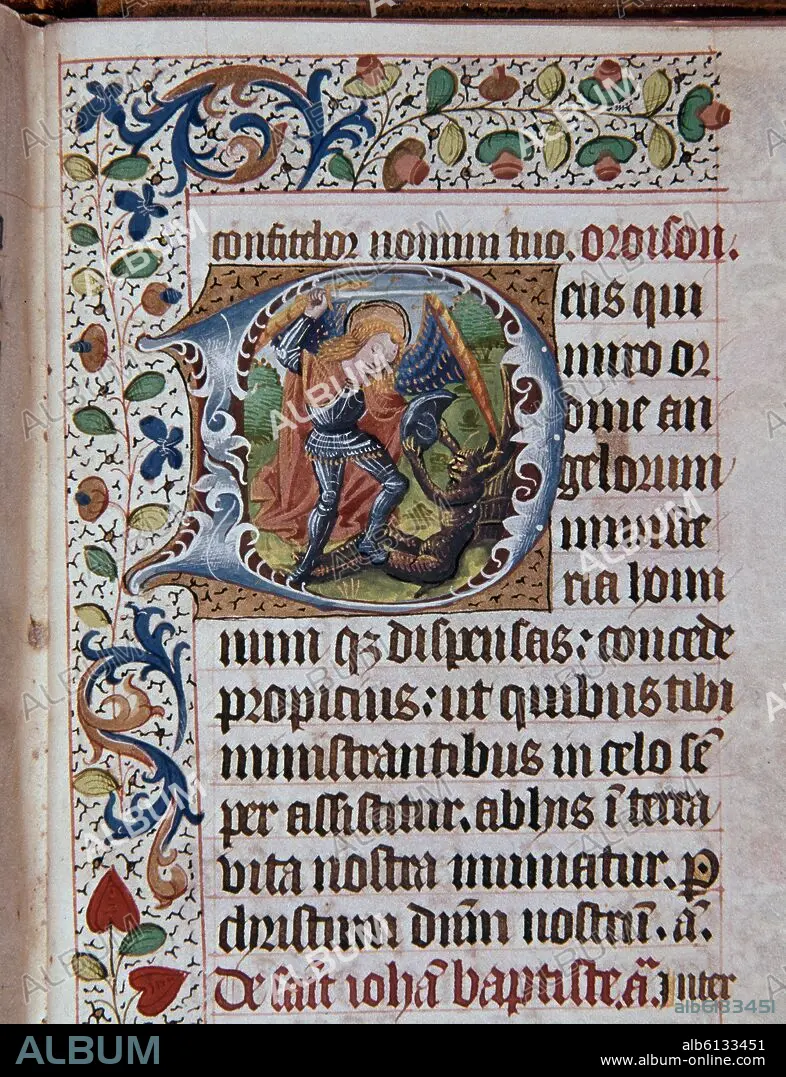 confitebor nomini tuo. oroison.
Deus qui
miro or
dine an
gelorum
ministe
ria homi
num qȝ dispensas: concede
propicius: ut quibus tibi
ministrantibus in celo sē
per assistitur. ab his ī terra
vita nostra muniatur. P
christum dnm̄ nostrū. a.̄
De saīt iohā baptiste. aā. Inter
ALBUM
alb6133451
www.album-online.com